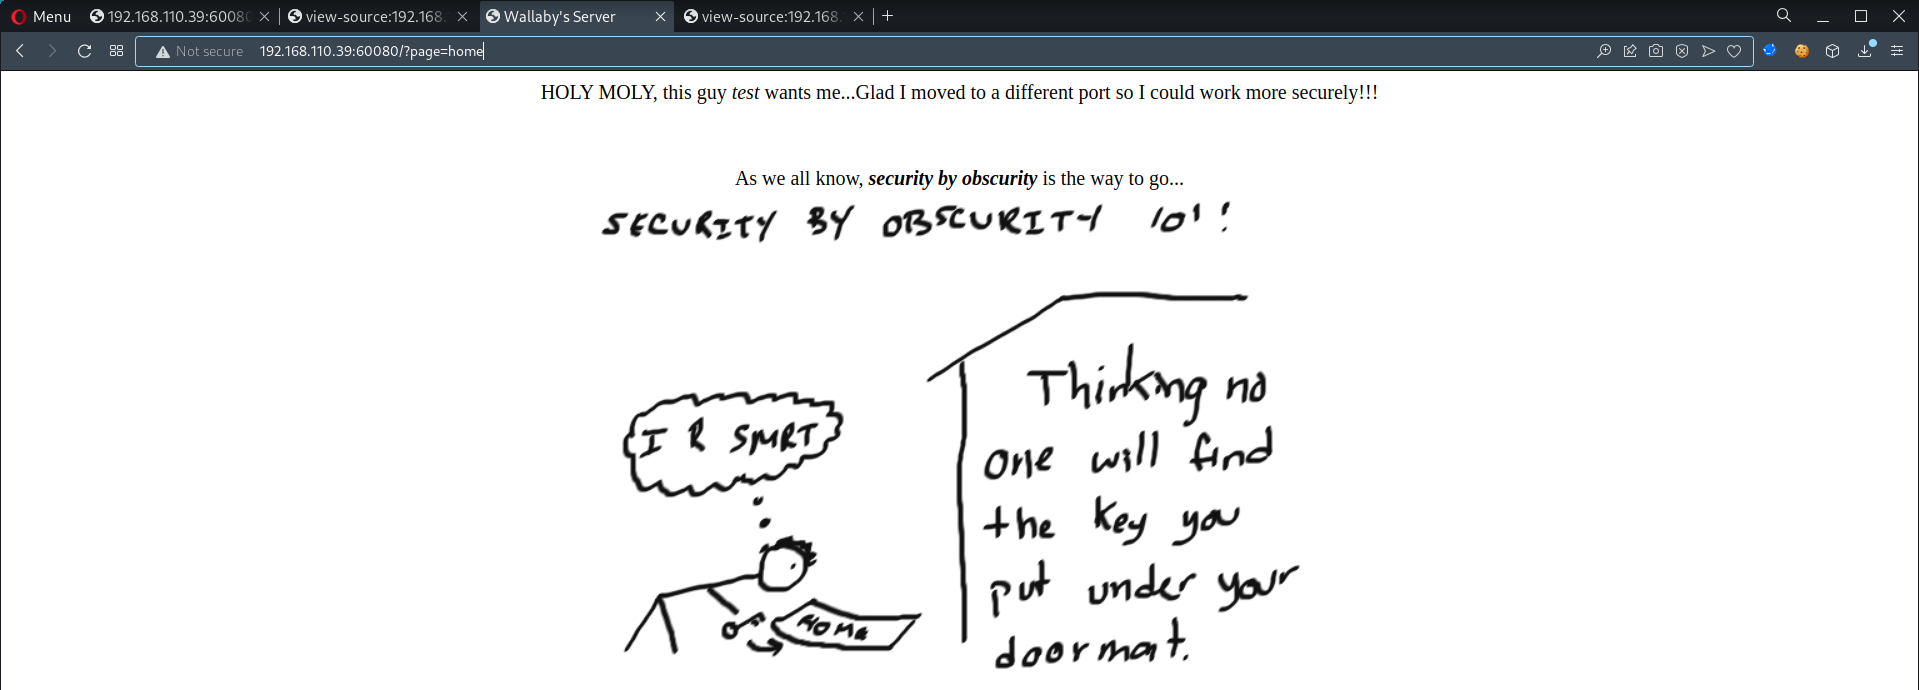 Menu 192.168.110.39:6008 view-source:192.168. Wallaby's Server view-source:192.168.
Not secure 192.168.110.39:60080/?page=home
HOLY MOLY, this guy test wants me...Glad I moved to a different port so I could work more securely!!!
As we all know, security by obscurity is the way to go...
SECURITY BY OBSCURITY 101!
Thinking no
one will find
the key you
put under your
doormat.
I R SMRT
HOME